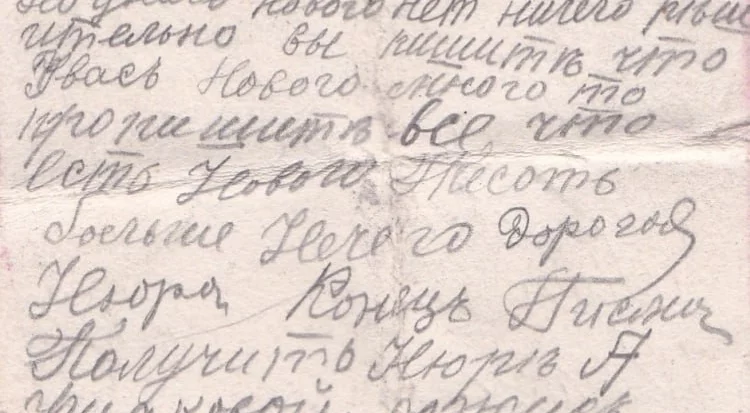 нового нет ничего рѣш
ительно вы пишитъ что
Увасъ Нового много то
пропишитъ все что
есть Нового Писать
больше Нечего Дорогая
Нюра Конецъ Писма
Получить Нюръ А